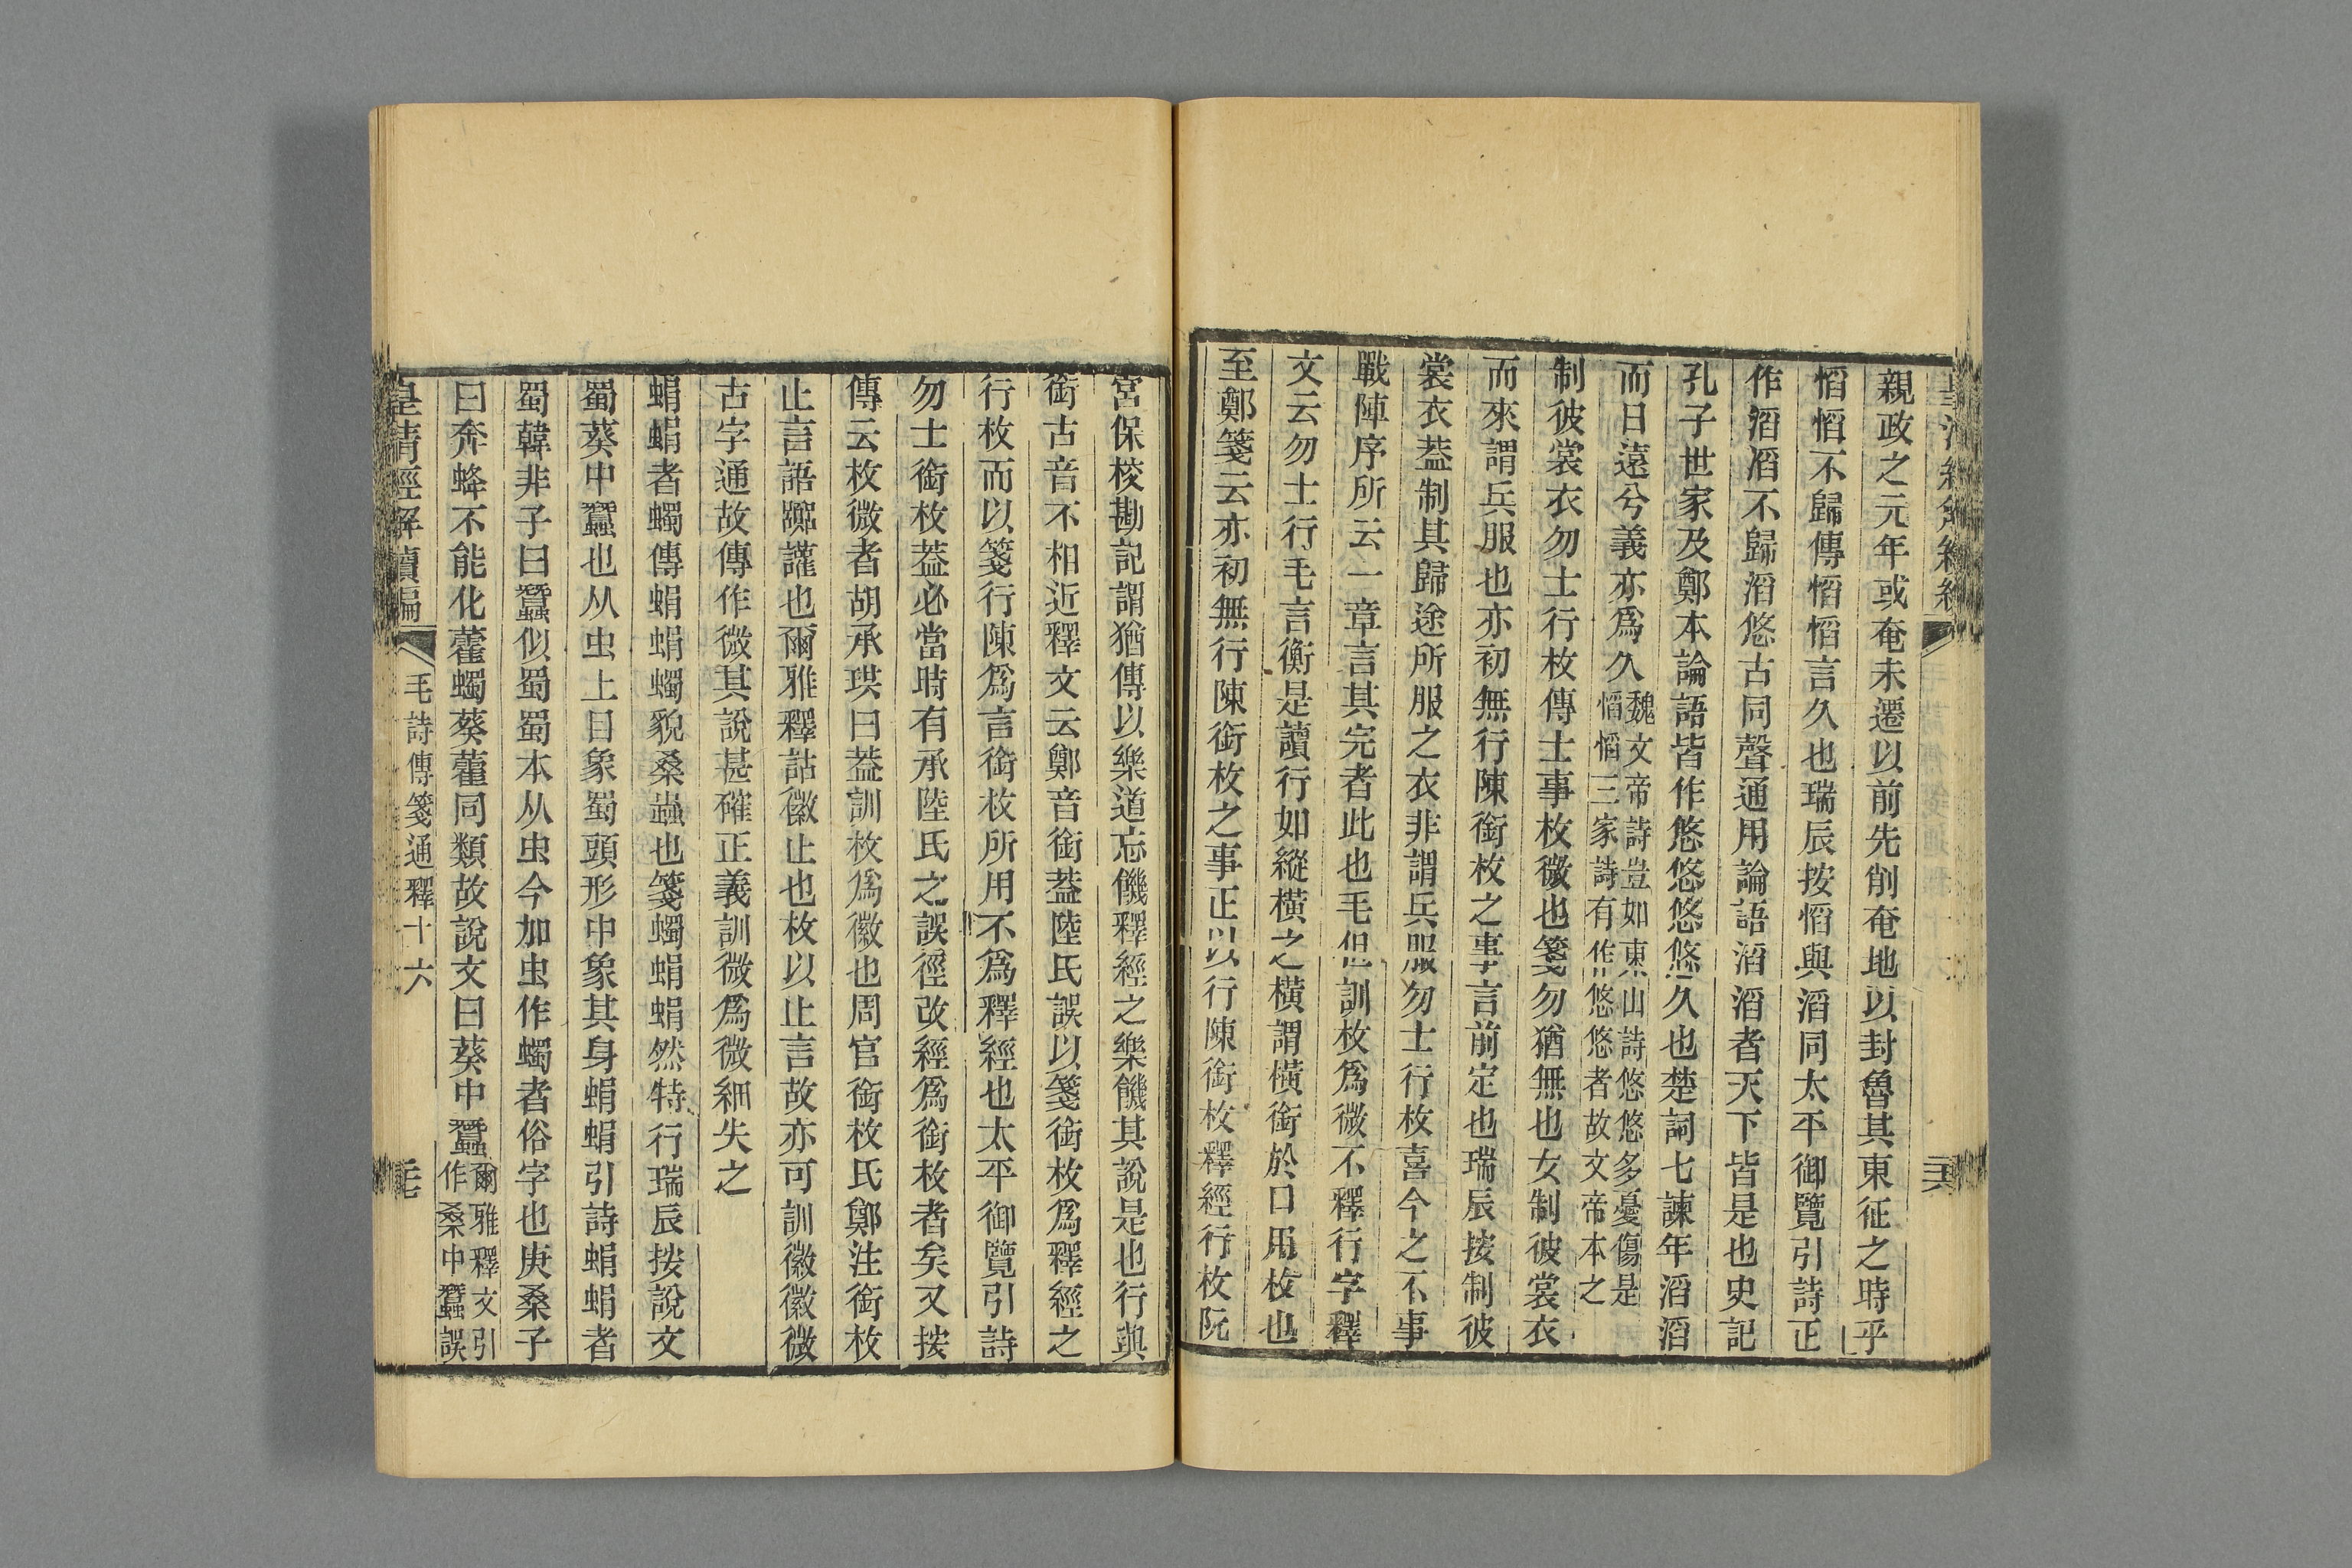 親政之元年或奄未遷以前先削奄地以封魯其東征之時乎
慆慆不歸傳慆慆言久也瑞辰按慆與滔同太平御覽引詩正
作滔滔不歸滔悠古同聲通用論語滔滔者天下皆是也史記
孔子世家及鄭本論語皆作悠悠悠悠久也楚詞七諫年滔滔
而日遠兮義亦爲久魏文帝詩豈如東山詩悠悠多憂傷是慆慆三家詩有作悠悠者故文帝本之
制彼裳衣勿士行枚傳士事枚微也箋勿猶無也女制彼裳衣
而來謂兵服也亦初無行陳銜枚之事言前定也瑞辰按制彼
裳衣葢制其歸途所服之衣非謂兵服勿士行枚喜今之不事
戰陣序所云一章言其完者此也毛但訓枚爲微不釋行字釋
文云勿士行毛言衡是讀行如縱橫之橫謂橫銜於口用枚也
至鄭箋云亦初無行陳銜枚之事正以行陳銜枚釋經行枚阮
宮保校勘記謂猶傳以樂道忘饑釋經之樂饑其說是也行與
銜古音不相近釋文云鄭音銜葢陸氏誤以箋銜枚爲釋經之
行枚而以箋行陳爲言銜枚所用不爲釋經也太平御覽引詩
勿士銜枚葢必當時有承陸氏之誤徑改經爲銜枚者矣又按
傳云枚微者胡承珙曰葢訓枚爲徽也周官銜枚氏鄭注銜枚
止言語嚻讙也爾雅釋詁徽止也枚以止言故亦可訓徽徽微
古字通故傳作微其說甚確正義訓微爲微細失之
蜎蜎者蠋傳蜎蜎蠋貌桑蟲也箋蠋蜎蜎然特行瑞辰按說文
蜀葵中蠶也从虫上目象蜀頭形中象其身蜎蜎引詩蜎蜎者
蜀韓非子曰蠶似蜀蜀本从虫今加虫作蠋者俗字也庚桑子
曰奔蜂不能化藿蠋葵藿同類故說文曰葵中蠶爾雅釋文引作桑中蠶誤
皇清經解續編 毛詩傳箋通釋十六